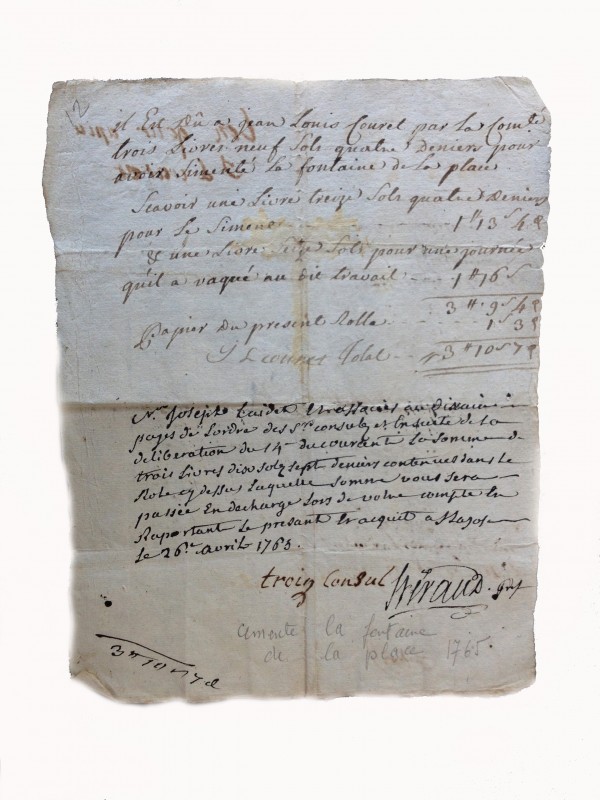 12
il Est Dû a jean Louis Couret par la Com.té
trois Livres neuf Sols quatre Deniers pour
avoir Simenté la fontaine de la place
Scavoir une Livre treize Sols quatre Deniers
pour le Simene 1 ₶ 13 s 4 d
& une Livre Seize Sols pour une journée
qu'il a vaqué au dit travail 1 ₶ 16 s
3 ₶ 9 s 4 d
Papier du present Rolle 1 3 d
Total 3 ₶ 10 s 7 d
Joseph
payes de Lordre des Srs consuls et Ensuite de la
deliberation du 14e du courant la Somme de
trois Livres dix solz sept deniers contenües dans le
Role cy dessus Laquelle somme vous sera
passée En decharge Lors de votre compte En
Raportant le presant
le 26e avril 1765.
troin Consul Giraud
cimenté la fontaine
de la place 1765.
3 ₶ 10 s 7 d